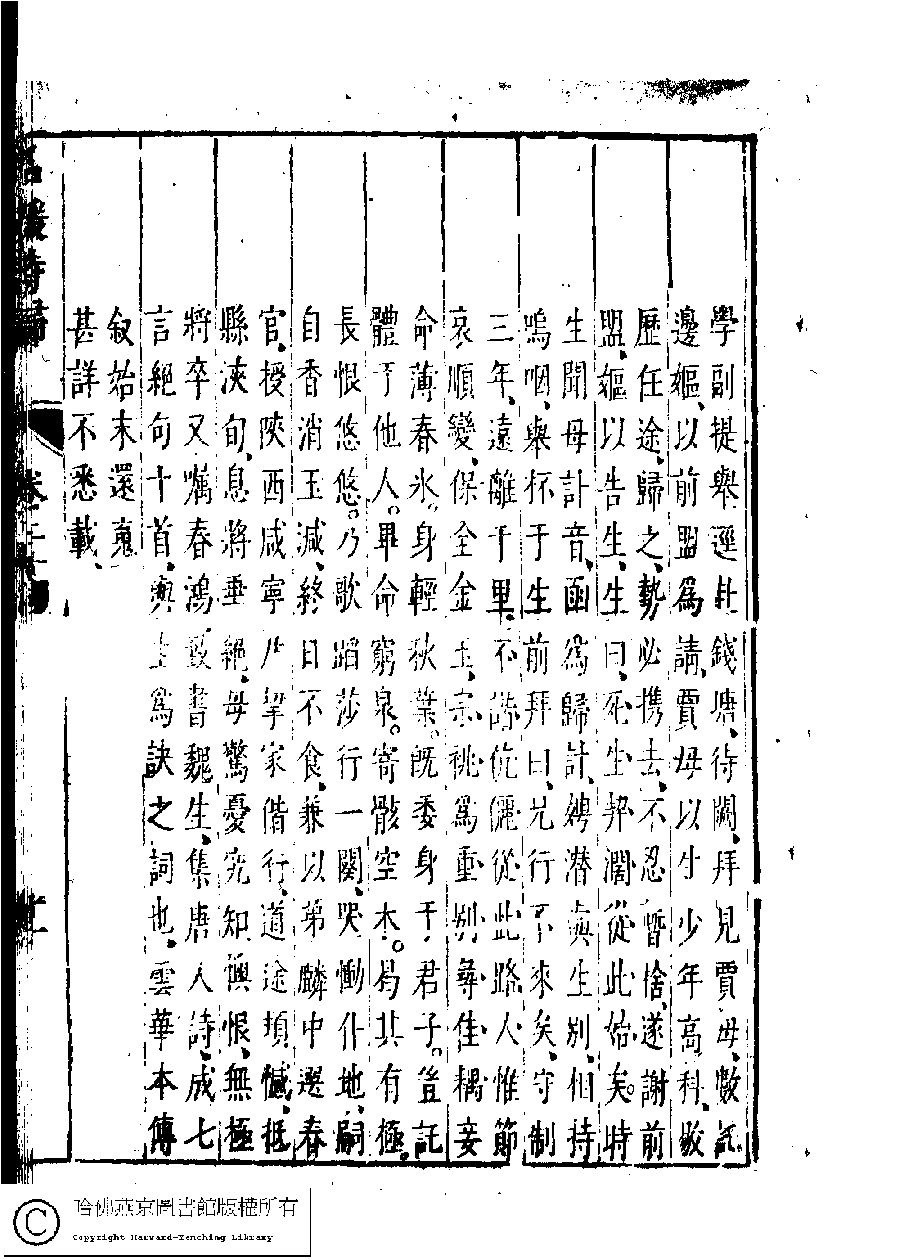 學副提舉逕赴錢塘、待闕、拜見賈母、數託
邊嫗、以前盟爲請、賈母以生少年高科、敭
歷任途、歸之、勢必携去、不忍暫捨、遂謝前
盟、嫗以告生、生曰、死生契濶從此始矣。時
生聞母訃音、函爲歸計、娉潛與生別、相持
嗚咽、舉杯于生前拜曰、兄行不來矣、守制
三年、遠離千里、不諧伉儷、從此路人、惟節
哀順變、保全金玉、宗祧爲重、別尋佳耦、妾
命薄春氷。身輕秋葉。旣委身于君子。豈託
體于他人。畢命窮泉。寄骸空木。曷其有極。
長恨悠悠。乃歌蹈莎行一闋、哭慟仆地、嗣
自香消玉減、終日不食、兼以弟麟中選春
官、授陝西咸寧尹、挈家偕行、道途頓憾、抵
縣浹旬、息將垂絕、母驚憂、究知懊恨、無極
將卒、又囑春鴻致書魏生、集唐人詩、成七
言絕句十首、與生爲訣之詞也、雲華本傳
叙始末還魂
甚詳不悉載、
名媛詩歸
卷二十
哈佛燕京圖書館版權所有
Copyright Harvard-Yenching Library